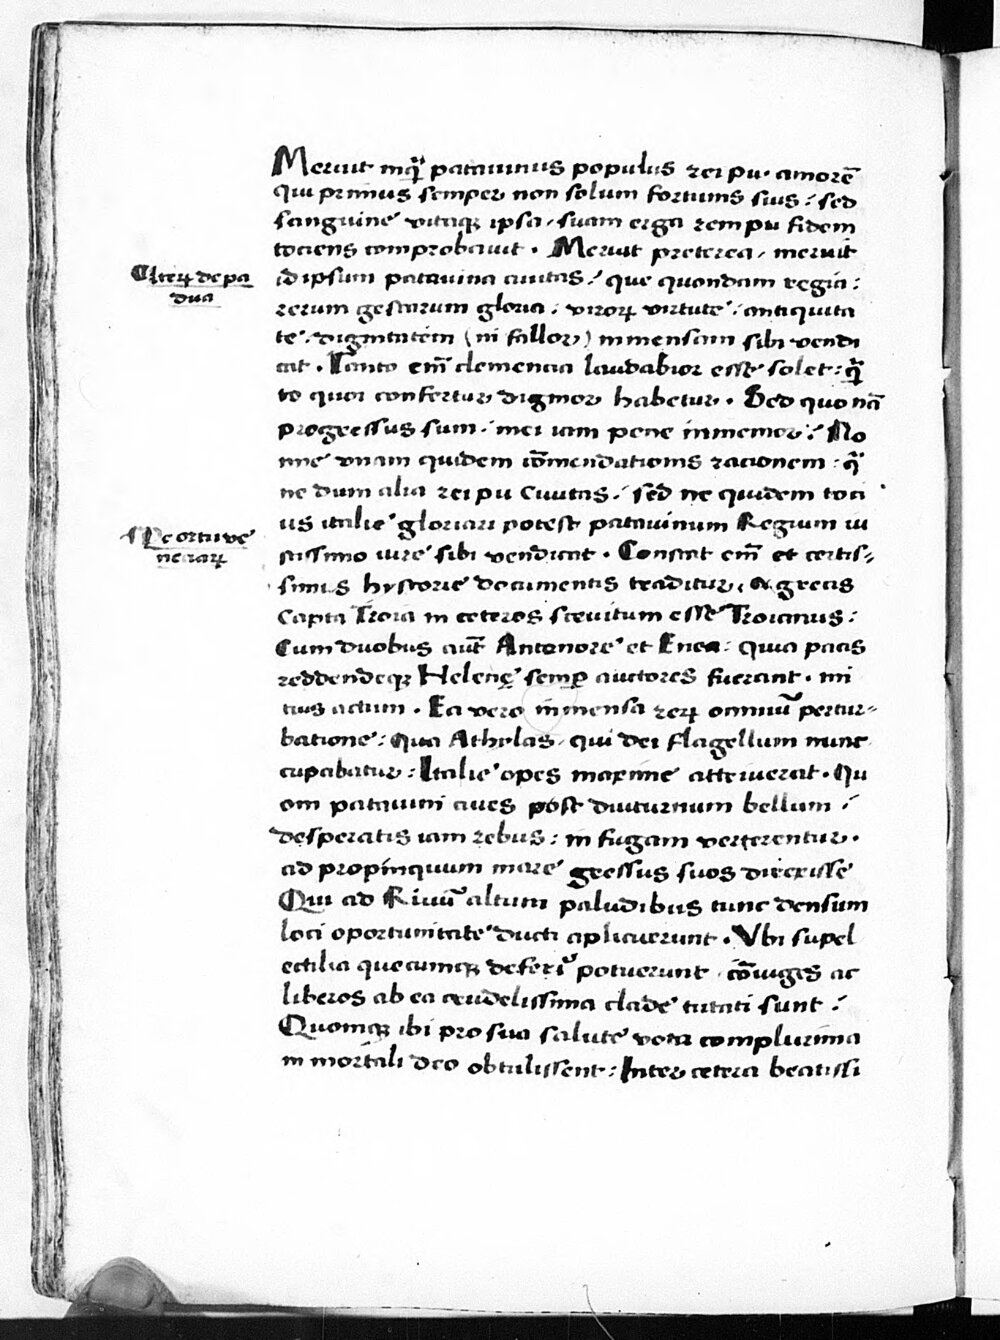 Meruit inqͣ patauinus populus rei pu. amorē
qui primus semper non solum fortunis suis: sed
sanguine vitaqꝫ ipsa. suam erga rem pu fidem
tociens comprobauit. Meruit preterea, meruit
Alterꝝ de pa
dua
id ipsum patauina ciuitas: que quondam regia:
rerum gestarum gloria: virorꝝ virtute: antiquita
te: dignitatem (ni fallor) inmensam sibi vendi
cat. Tanto em̄ clemencia laudabior esse solet: qͣ̄
to quoi confertur dignior habetur. Sed quo nā
progressus sum: mei iam pene inmemor? No
nne vnam quidem cōmendationis racionem: qͣ
ne dum alia rei pu Ciuitas: sed ne quidem toci
De ortu ve
neciarꝝ
us italie gloriari potest patauinum Regium iu
stissimo iure sibi vendicat. Constat em̄ et certis-
simis hystorie documentis traditur, & grecis
Capta Troia in ceteros sceuitum esse Troianus:
Cum duobus aut̄ Antenore et Enea: quia pacis
reddendeqꝫ Helenę semp̲ auctores fuerant. mi
tius actum. Ea vero inmensa rerꝝ omniū pertur-
batione: Qua Athylas. qui dei flagellum nunc
cupabatur: Italie opes maxime attriuerat. Qu
om patauini ciues post diuturnum bellum:
desperatis iam rebus: in fugam verterentur.
ad propinquum mare gressus suos direxisse
Qui ad Riuū altum paludibus tunc densum
loci oportunitate ducti aplicuerunt. Vbi supel
ectilia quecumqꝫ deferi᷒ potuerunt. cōiuges ac
liberos ab ea crudelissima clade tutati sunt:
Quomqꝫ ibi pro sua salute vota complurima
in mortali deo obtulissent: Inter cetera beatissi